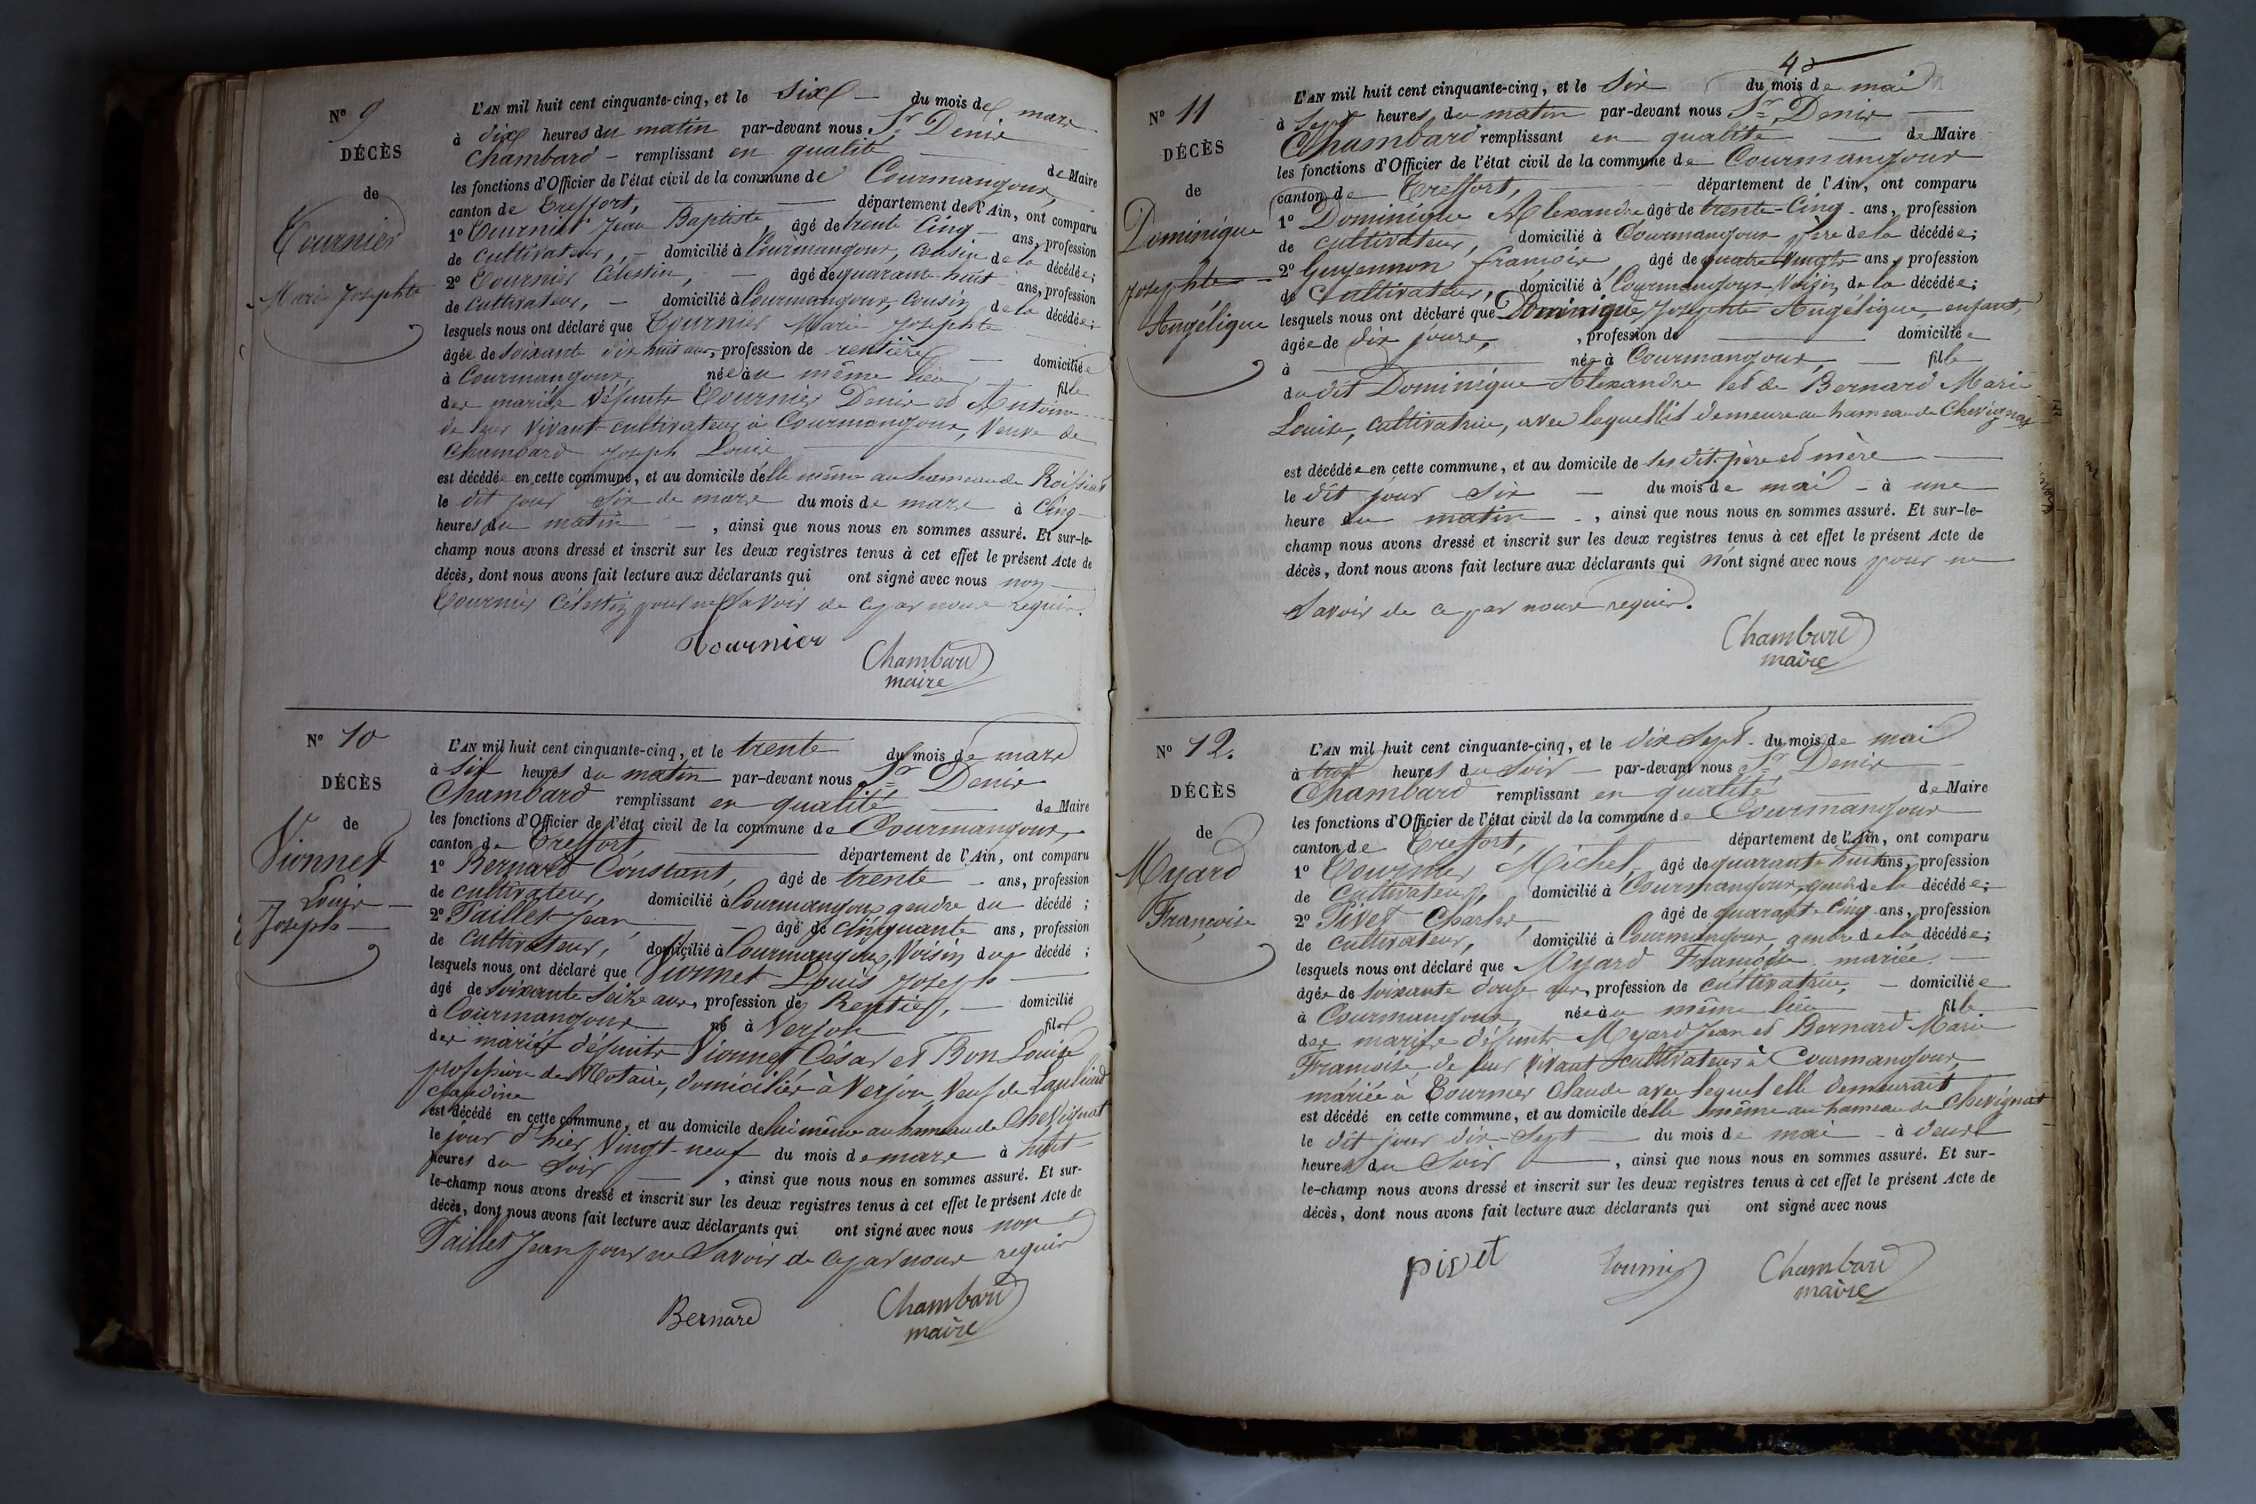 Nº 9
DÉCÈS
de
Tournier
Marie Josephte
L'AN mil huit cent cinquante-cinq, et le six du mois de mars
à dix heures du matin par-devant nous Sr Denis
Chambard remplissant en qualité de Maire
les fonctions d'Officier de l'état civil de la commune de Courmangoux,
canton de Treffort, département de l'Ain, ont comparu
1º Tournier Jean Baptiste, âgé de trente cinq ans, profession
de cultivateur, domicilié à Courmangoux, cousin de la décédée;
2º Tournier Célestin, âgé de quarante huit ans, profession
de cultivateur, domicilié à Courmangoux, cousin de la décédée;
lesquels nous ont déclaré que Tournier Marie Josephte
âgée de soixante dix huit ans, profession de rentière domiciliée
à Courmangoux, née au même lieu, fille
des mariés défunts Tournier Denis et Antoine
de leur vivant cultivateurs à Courmangoux, veuve de
Chambard Joseph Louis
est décédée en cette commune, et au domicile d'elle même au hameau de Roissiat
le dit jour six de mars du mois de mars à cinq
heures du matin, ainsi que nous nous en sommes assuré. Et sur-le-
champ nous avons dressé et inscrit sur les deux registres tenus à cet effet le présent Acte de
décès, dont nous avons fait lecture aux déclarants qui ont signé avec nous non
Tournier Célestin pour ne savoir de ce par nous requis.
Tournier
Chambard
maire
Nº 10
DÉCÈS
de
Vionnet
Louis
Joseph
L'AN mil huit cent cinquante-cinq, et le trente du mois de mars
à six heures du matin par-devant nous Sr Denis
Chambard remplissant en qualité de Maire
les fonctions d'Officier de l'état civil de la commune de Courmangoux,
canton de Treffort, département de l'Ain, ont comparu
1º Bernard Constant, âgé de trente ans, profession
de cultivateur, domicilié à Courmangoux gendre du décédé;
2º Paillet Jean, âgé de cinquante ans, profession
de cultivateur, domicilié à Courmangoux, voisin du décédé;
lesquels nous ont déclaré que Vionnet Louis Joseph
âgé de soixante seize ans, profession de Rentier, domicilié
à Courmangoux né à Verjon fils
des mariés défunts Vionnet César et Bon Louise
profession de Notaire, domiciliée à Verjon, veuf de
Claudine
est décédé en cette commune, et au domicile de lui même au hameau de Chevignat
le jour d'hier vingt-neuf du mois de mars à huit
heures du soir, ainsi que nous nous en sommes assuré. Et sur-
le-champ nous avons dressé et inscrit sur les deux registres tenus à cet effet le présent Acte de
décès, dont nous avons fait lecture aux déclarants qui ont signé avec nous non
Paillet Jean pour ne savoir de ce par nous requis
Bernard
Chambard
maire
42
Nº 11
DÉCÈS
de
Dominique
Josephte
Angélique
L'AN mil huit cent cinquante-cinq, et le six du mois de mai
à sept heures du matin par-devant nous Sr Denis
Chambard remplissant en qualité de Maire
les fonctions d'Officier de l'état civil de la commune de Courmangoux
canton de Treffort, département de l'Ain, ont comparu
1º Dominique Alexandre âgé de trente-cinq ans, profession
de cultivateur, domicilié à Courmangoux père de la décédée;
2º Guyennon François, âgé de quatre vingts ans, profession
de cultivateur, domicilié à Courmangoux voisin de la décédée;
lesquels nous ont déclaré que Dominique Josephte Angélique, enfant,
âgée de dix jours, profession de domiciliée
à née à Courmangoux, fille
du dit Dominique Alexandre et de Bernard Marie
Louise, cultivatrice, avec lequel elle demeure au hameau de Chevignat
est décédée en cette commune, et au domicile de ses dit père et mère
le dit jour six du mois de mai à une
heure du matin, ainsi que nous nous en sommes assuré. Et sur-le-
champ nous avons dressé et inscrit sur les deux registres tenus à cet effet le présent Acte de
décès, dont nous avons fait lecture aux déclarants qui n'ont signé avec nous pour ne
savoir de ce par nous requis.
Chambard
maire
Nº 12.
DÉCÈS
de
Myard
Françoise
L'AN mil huit cent cinquante-cinq, et le dix sept du mois de mai
à trois heures du soir par-devant nous Sr Denis
Chambard remplissant en qualité de Maire
les fonctions d'Officier de l'état civil de la commune de Courmangoux
canton de Treffort, département de l'Ain, ont comparu
1º Tournier Michel, âgé de quarante huit ans, profession
de cultivateur, domicilié à Courmangoux, gendre de la décédée;
2º Pivet Charles, âgé de quarante-cinq ans, profession
de cultivateur, domicilié à Courmangoux gendre de la décédée;
lesquels nous ont déclaré que Myard Françoise mariée
âgée de soixante douze ans, profession de cultivatrice, domiciliée
à Courmangoux, née au même lieu fille
des mariés défunts Myard Jean et Bernard Marie
Françoise de leur vivant cultivateurs à Courmangoux,
mariée à Tournier Claude avec lequel elle demeurait
est décédé en cette commune, et au domicile d'elle même au hameau de Chevignat
le dit jour dix-sept du mois de mai à deux
heures du soir, ainsi que nous nous en sommes assuré. Et sur-
le-champ nous avons dressé et inscrit sur les deux registres tenus à cet effet le présent Acte de
décès, dont nous avons fait lecture aux déclarants qui ont signé avec nous
pivet
Tournier
Chambard
maire